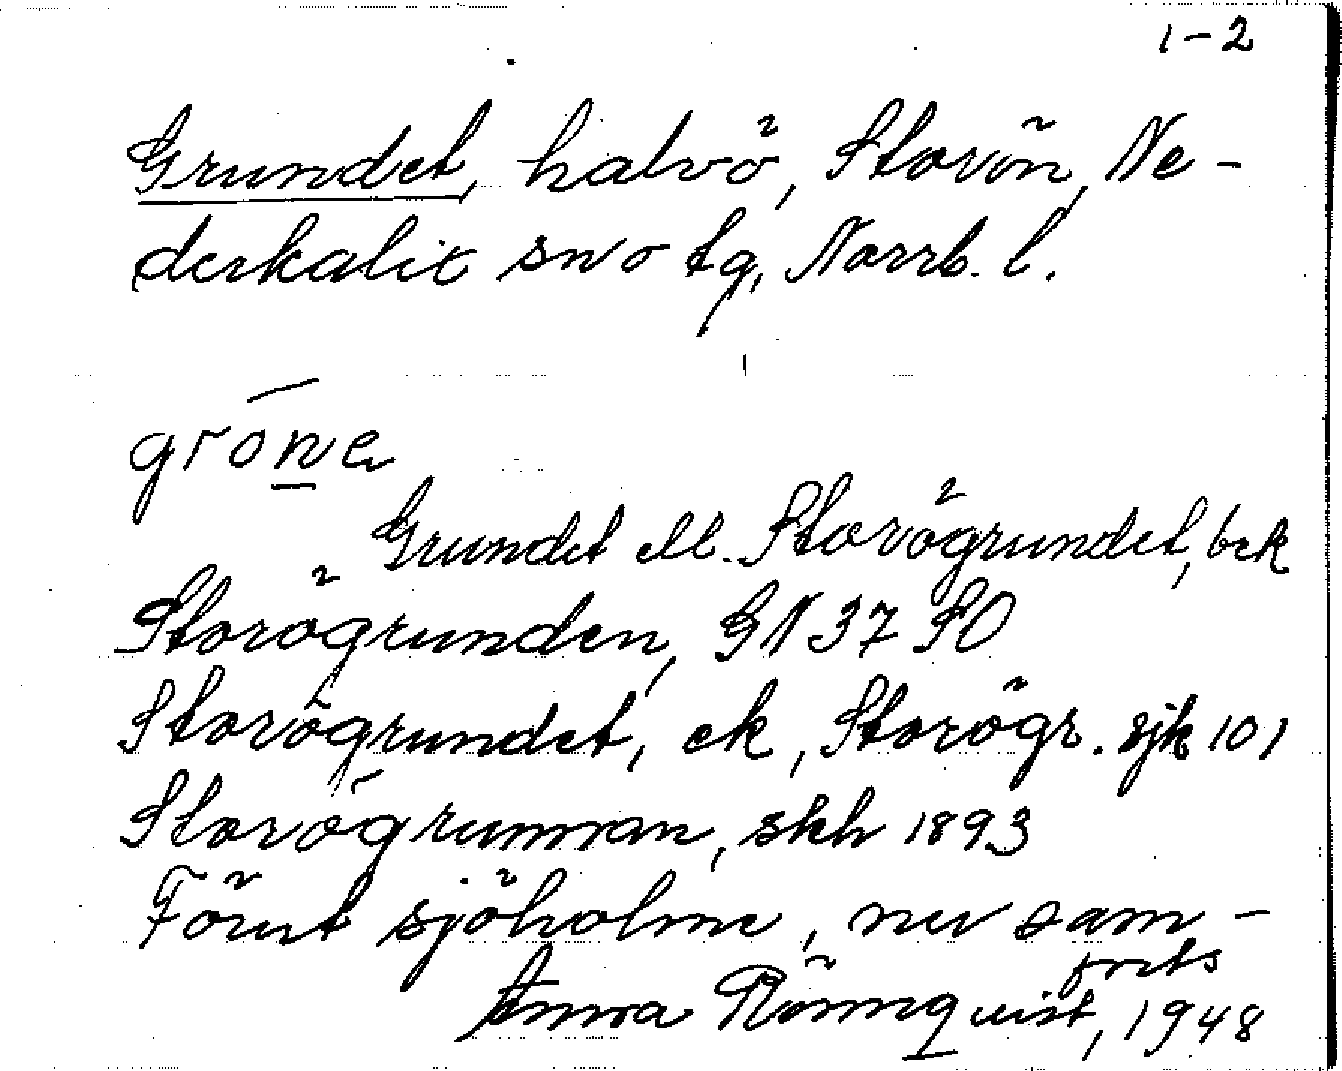 1-2
Grundet, halvö, Storön, Ne-
derkalix sn o tg, Norrb. l.
grōn̲e
Grundet ell. Storögrundet, bek
Storögrunden, GN 37 SO
Storögrundet, ek, Storögr. sjk 101
Storögrunnan, skh 1893
Förut sjöholme, nu sam-
forts
Anna Rönnquist, 1948